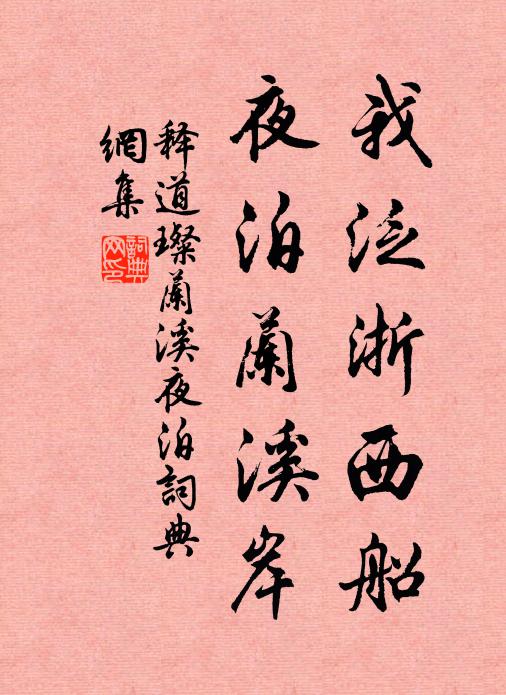 我泛浙西船
夜泊蘭溪岸
釋道璨蘭溪夜泊詞典
網集
詞典網印